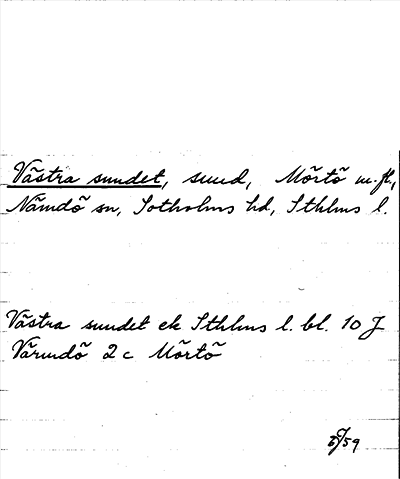 Västra sundet, sund, Mörtö m.fl.,
Nämdö sn, Sotholms hd, Sthlms l.
Västra sundet ek Sthlms l. bl. 10 J
Värmdö 2 c Mörtö
59